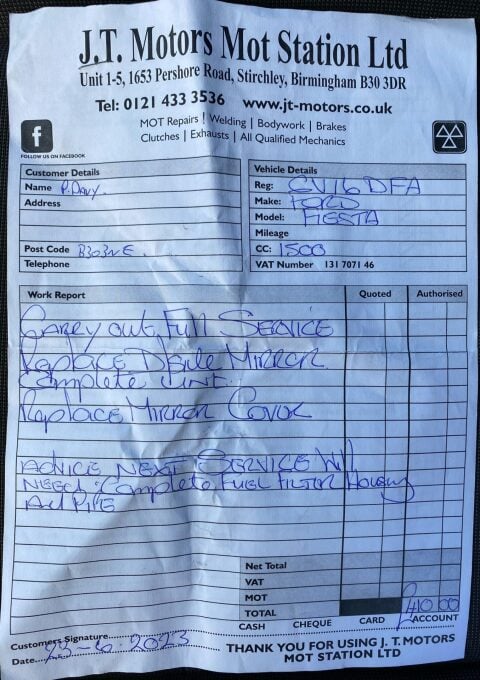 J.T. Motors Mot Station Ltd
Unit 1-5, 1653 Pershore Road, Stirchley, Birmingham B30 3DR
Tel: 0121 433 3536 www.jt-motors.co.uk
MOT Repairs | Welding | Bodywork | Brakes
Clutches | Exhausts | All Qualified Mechanics
f
FOLLOW US ON FACEBOOK
Customer Details
Name P. Davy.
Address
Post Code B303NE
Telephone
Vehicle Details
Reg: CV16 DFA
Make: FORD
Model: FIESTA
Mileage
CC: 1500
VAT Number 131 7071 46
Work Report Quoted Authorised
CARRY OUT FULL SERVICE
Replace MIRROR
Complete UNIT
Replace MIRROR
ADVICE NEXT SERVICE Will
NEED Complete FUEL FILTER Housing
And PIPE
Net Total
VAT
MOT
TOTAL £410.00
CASH CHEQUE CARD ACCOUNT
Customers Signature
Date 23-6-2023
THANK YOU FOR USING J. T. MOTORS
MOT STATION LTD